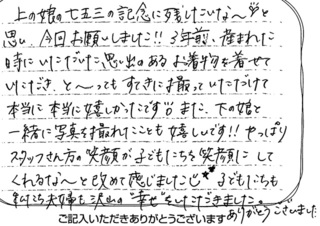 上の娘の七五三の記念に残したいな〜♡と
思い、今回お願いしました!! 3年前、産まれた
時にいただいた思い出のあるお着物を着せて
いただき、と〜ってもすてきに撮っていただけて
本当に本当に嬉しかったです♡ また、下の娘と
一緒に写真を撮れたことも嬉しいです!! やっぱり
スタッフさん方の笑顔が子どもたちを笑顔にして
くれるな〜と改めて感じました 子どもたちも
私たち夫婦も沢山の"幸せ"をいただきました。
ご記入いただきありがとうございます ありがとうございました